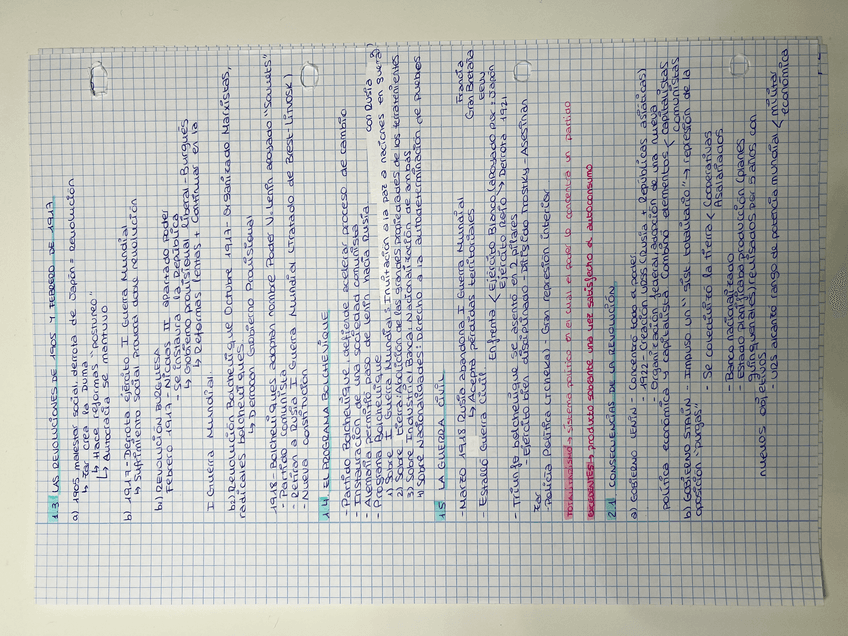 1.3 LAS REVOLUCIONES DE 1905 Y FEBRERO DE 1917
a) 1905 malestar social, derrota de Japón = Revolución
↳ Zar crea la Duma
↳ Hace reformas "postureo"
↳ Autocracia se mantuvo
b) 1917 - Derrota ejército I Guerra Mundial
↳ Sufrimiento social provocó doble revolución
b1) REVOLUCIÓN BURGUESA
Febrero 1917 - Nicolás II apartado Poder
- Se instaura la República
↳ Gobierno provisional liberal - Burgués
↳ Reformas lentas + continuar en la
I Guerra Mundial.
b2) Revolución Bolchevique Octubre 1917 - organizado Marxistas,
radicales bolcheviques.
↳ Derrocan Gobierno Provisional
1918 Bolcheviques adoptan nombre Poder V. Lenin apoyado "Soviets"
- Partido Comunista
- Retiran a Rusia I Guerra Mundial (Tratado de Brest-Litovsk)
- Nueva constitución
1.4. EL PROGRAMA BOLCHEVIQUE
- Partido Bolchevique defiende acelerar proceso de cambio
- Instauración de una sociedad comunista
- Alemania permitió paso de Lenin hacia Rusia con Rusia
- Programa Bolchevique
1) Sobre I Guerra Mundial: Invitación a la paz a naciones en guerra
2) Sobre tierra: Abolición de las grandes propiedades de los terratenientes
3) Sobre Industria y Banca: Nacionalización de ambas
4) Sobre Nacionalidades: Derecho a la autodeterminación de pueblos
1.5 LA GUERRA CIVIL
- Marzo 1918 Rusia abandona I Guerra Mundial
↳ Acepta pérdidas territoriales
- Estalló Guerra Civil
Francia
Gran Bretaña
EEUU
Enfrenta < Ejército Blanco (apoyado por: Japón
Ejército Rojo → Derrota 1921
- Triunfo bolchevique se asentó en 2 pilares
- Ejército bien disciplinado - Dirigido Trostky - Asesinan
Zar
- Policía Política (Cheka) - Gran represión interior
TOTALITARISMO → sistema político en el cual el poder lo concentra un partido
EXCEDENTES → producto sobrante una vez satisfecho el autoconsumo
2.1 CONSECUENCIAS DE UN REVOLUCIÓN
a) GOBIERNO LENIN - Concentró todo el poder
- 1922 - Creación URSS (Rusia + Repúblicas asiáticas)
- Organización federal, adopción de una nueva
política económica y capitalista Combinó elementos < capitalistas
comunistas
b) GOBIERNO STALIN - Impuso un "sist. totalitario" → represión de la
oposición "purgas"
- Se colectivizó la tierra < Cooperativas
Asalariados
- Banca nacionalizada
- Estado planificaba producción (planes
quinquenales) revisados por 5 años con
nuevos objetivos
- URSS alcanzó rango de potencia mundial < militar
económica